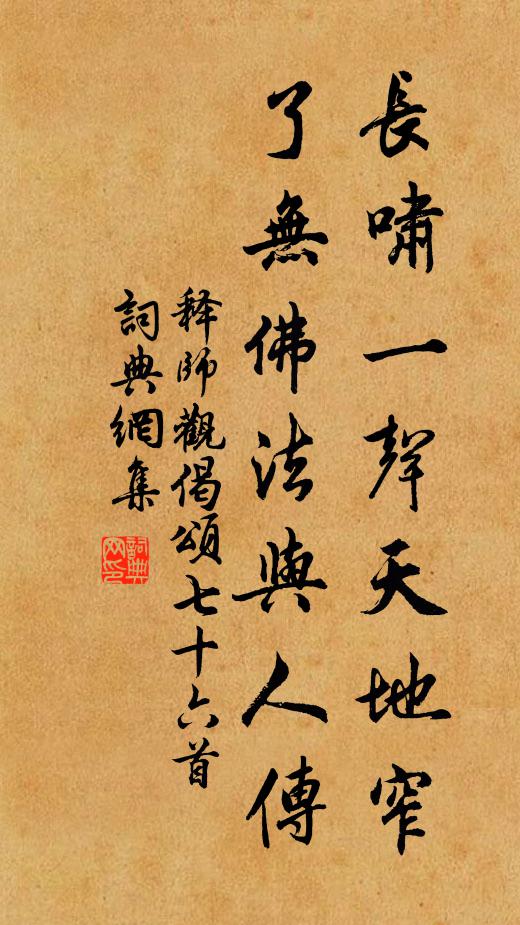 長嘯一聲天地窄
了無佛法與人傳
释師觀偈頌七十六首
詞典網集
詞典网印